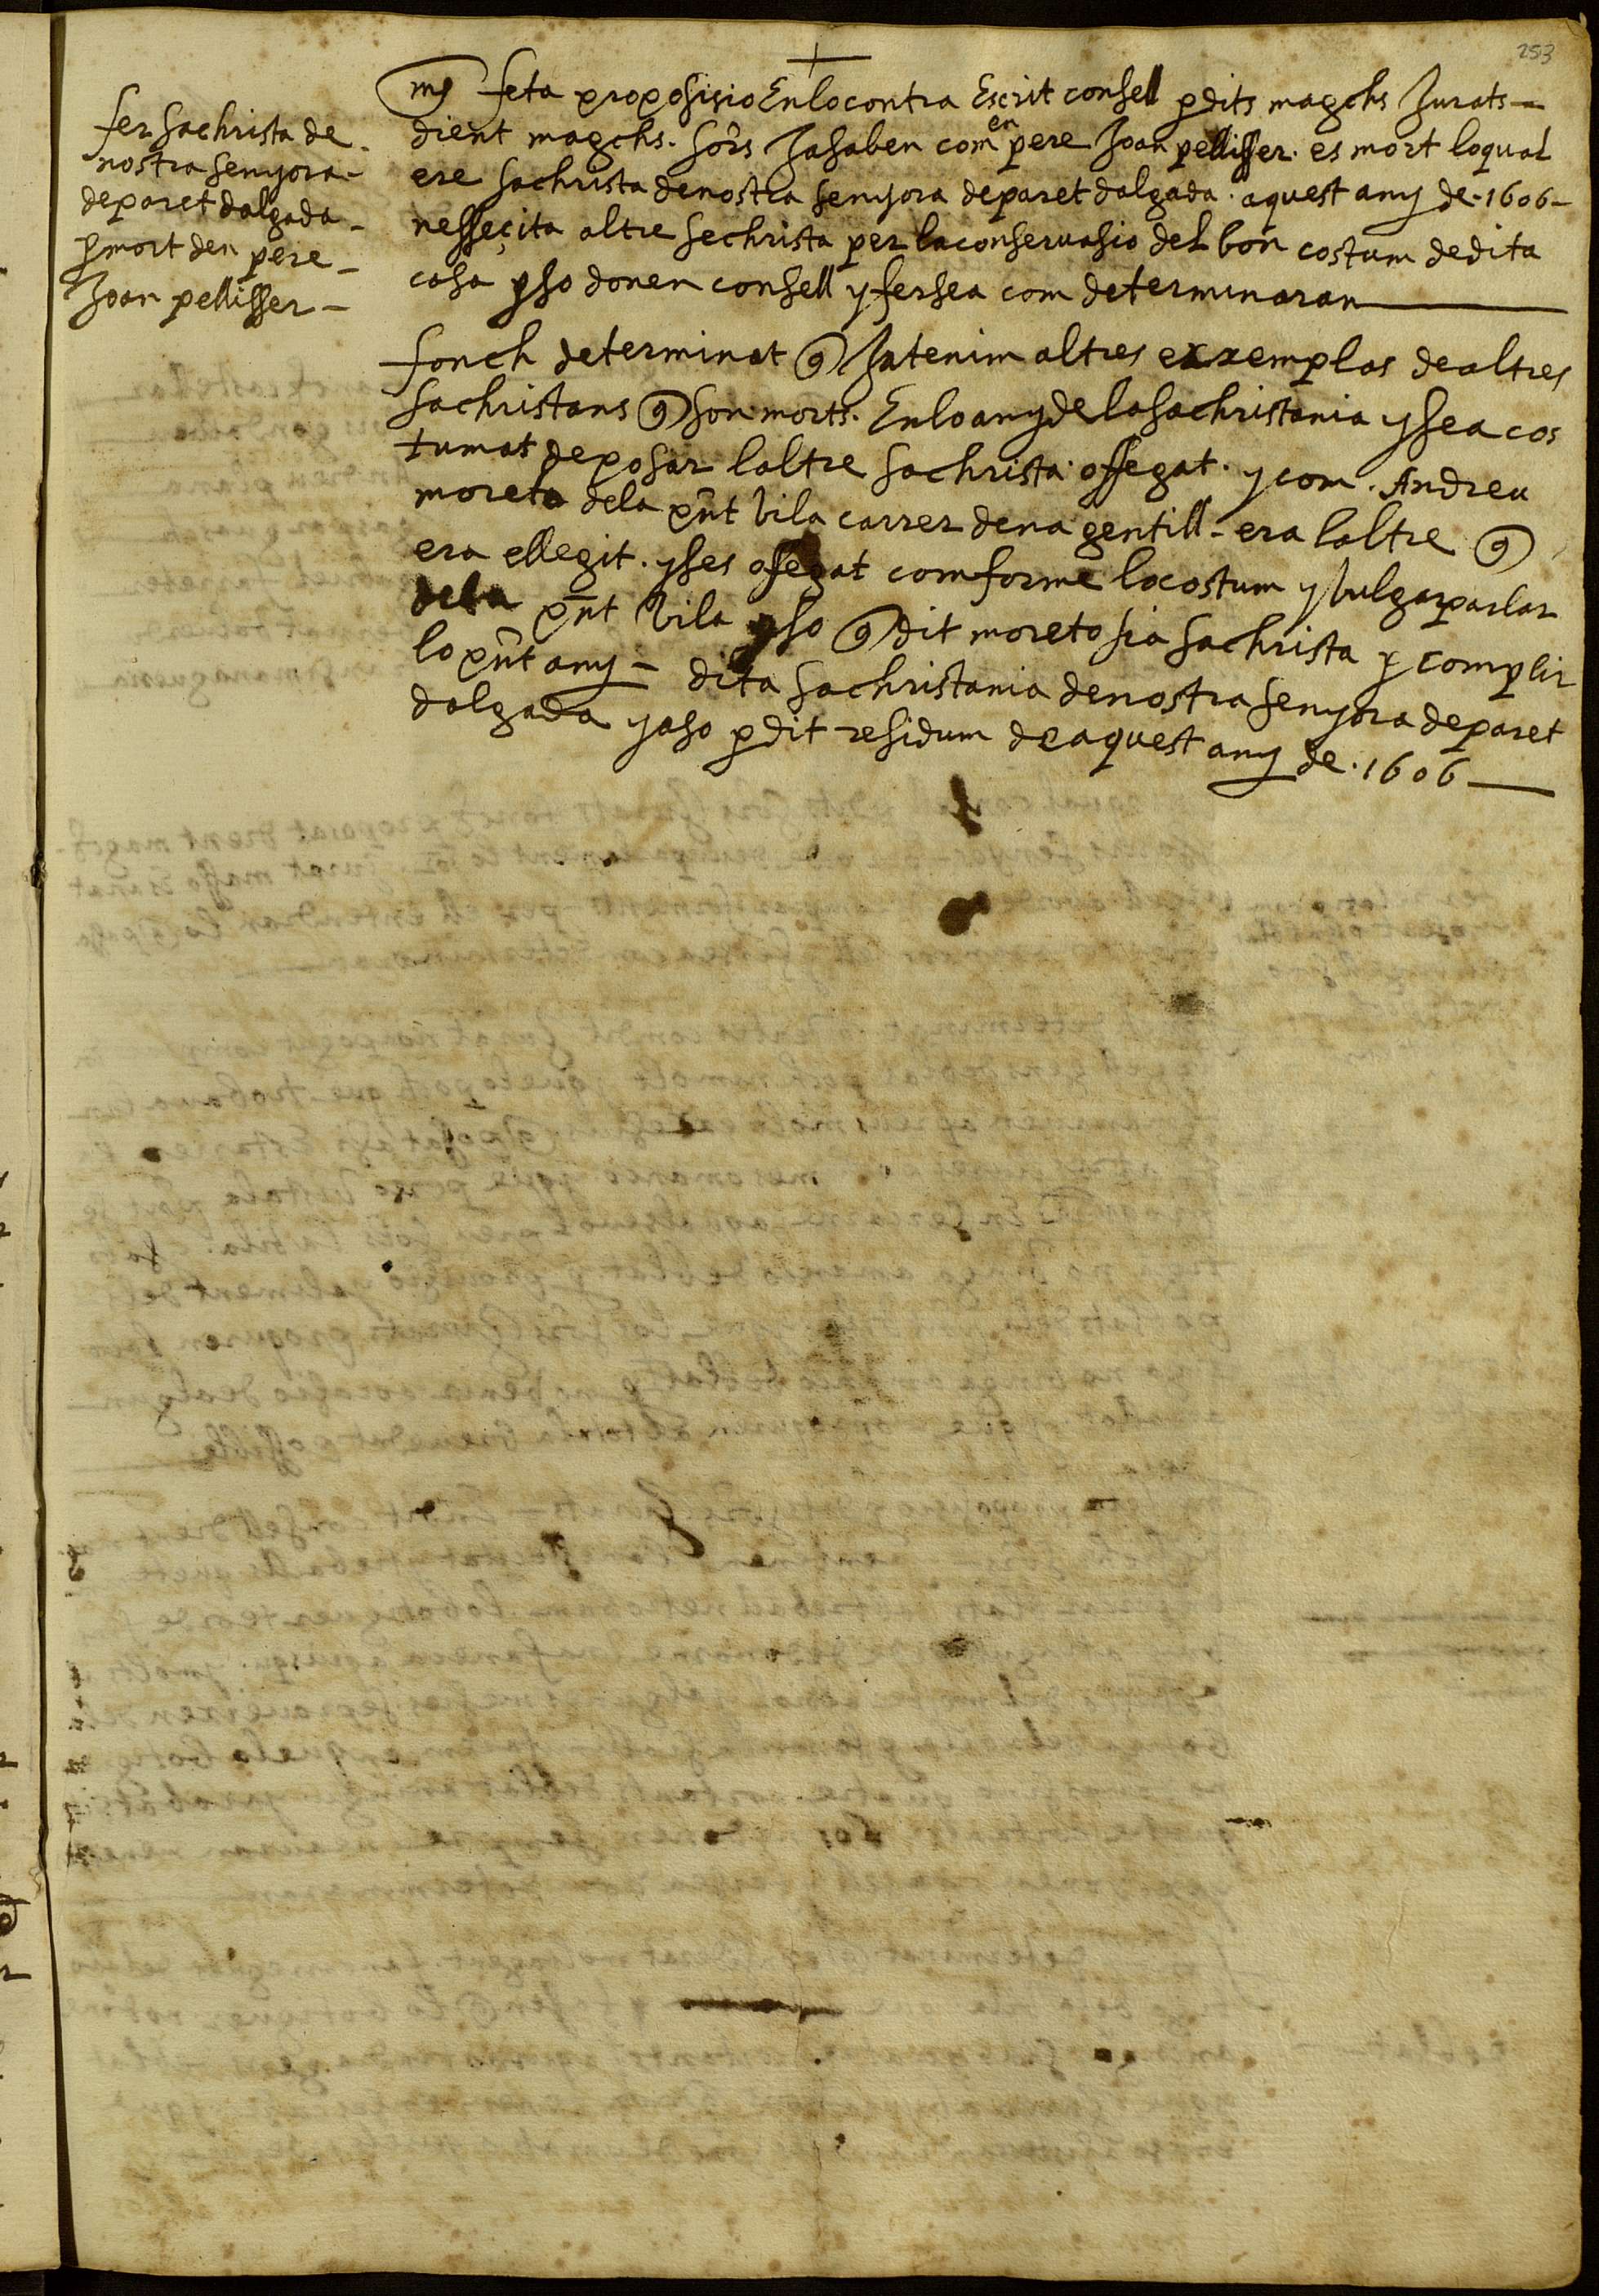 253
fer sachrista de
nostra senyora
de paret dalgada
p mort den pere
Joan pellisser
mes feta proposisio En lo contra Escrit consell p dits magchs Jurats
dient magchs. sors Ja saben com en pere Joan pellisser. es mort lo qual
ere sachrista de nostra senyora de paret dalgada. aquest any de. 1606
nesseçita altre sechrista per la conseruasio del bon costum de dita
casa p so donen consell y fersea com determinaran
fonch determinat q Ja tenim altres exxemplas de altres
sachristans q son morts. En lo any de la sachristania y sea cos
tumat de posar laltre sachrista offegat. y com. Andreu
moreto de la pnt vila carrer de na gentill. era laltre q
era ellegit. y ses offegat comforme lo costum y vulgar parlar
de la pnt vila p so q dit moreto sia sachrista p complir
lo pnt any dita sachristania de nostra senyora de paret
dalgada y aso p dit residum de aquest any de. 1606